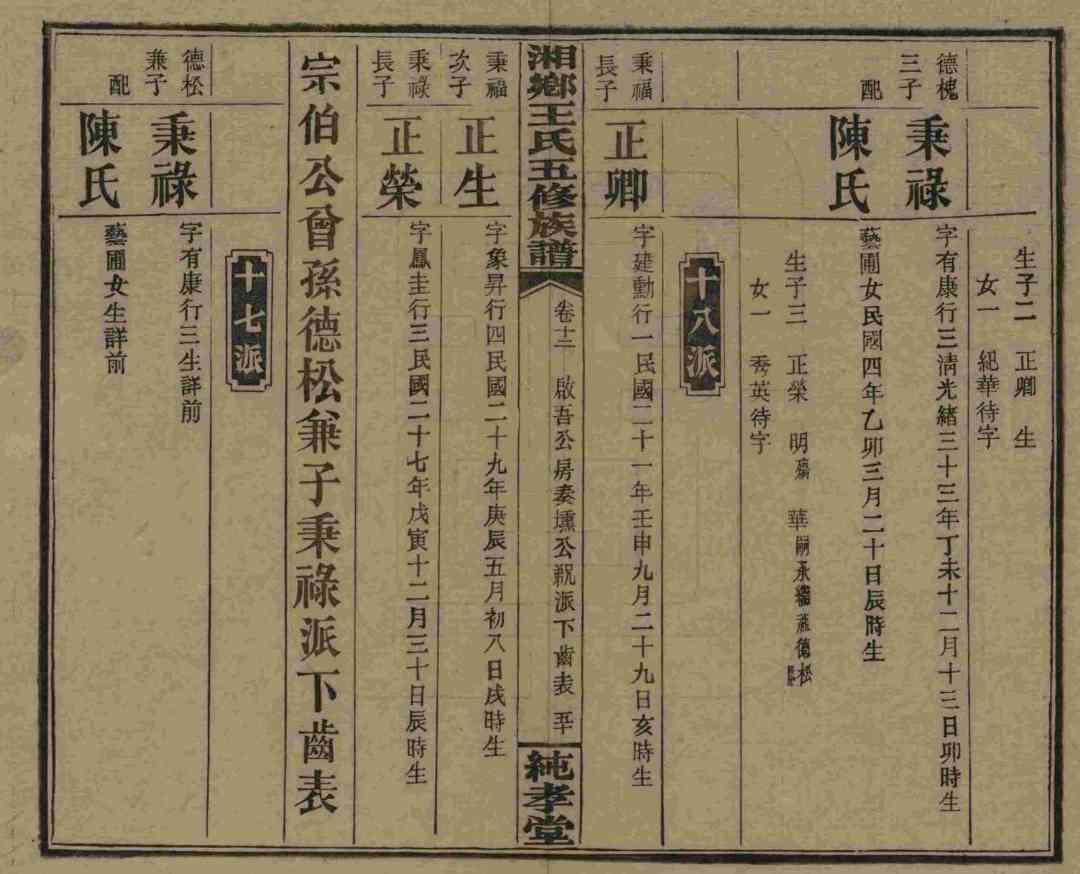 生子二　正卿　生
女一　紀華待字
德槐
三子
秉祿
字有康行三淸光緒三十三年丁未十二月十三日卯時生
配
陳氏
藝圃女民國四年乙卯三月二十日辰時生
生子三　正榮　明　華嗣永繼　德松
女一　秀英待字
十八派
秉福
長子
正卿
字建勳行一民國二十一年壬申九月二十九日亥時生
湘鄉王氏五修族譜
卷十二　啟吾公房奏壎公祝派下齒表
純孝堂
秉福
次子
正生
字象昇行四民國二十九年庚辰五月初八日戌時生
秉祿
長子
正榮
字鳳圭行三民國二十七年戊寅十二月三十日辰時生
宗伯公曾孫德松兼子秉祿派下齒表
十七派
德松
兼子
秉祿
字有康行三生詳前
配
陳氏
藝圃女生詳前